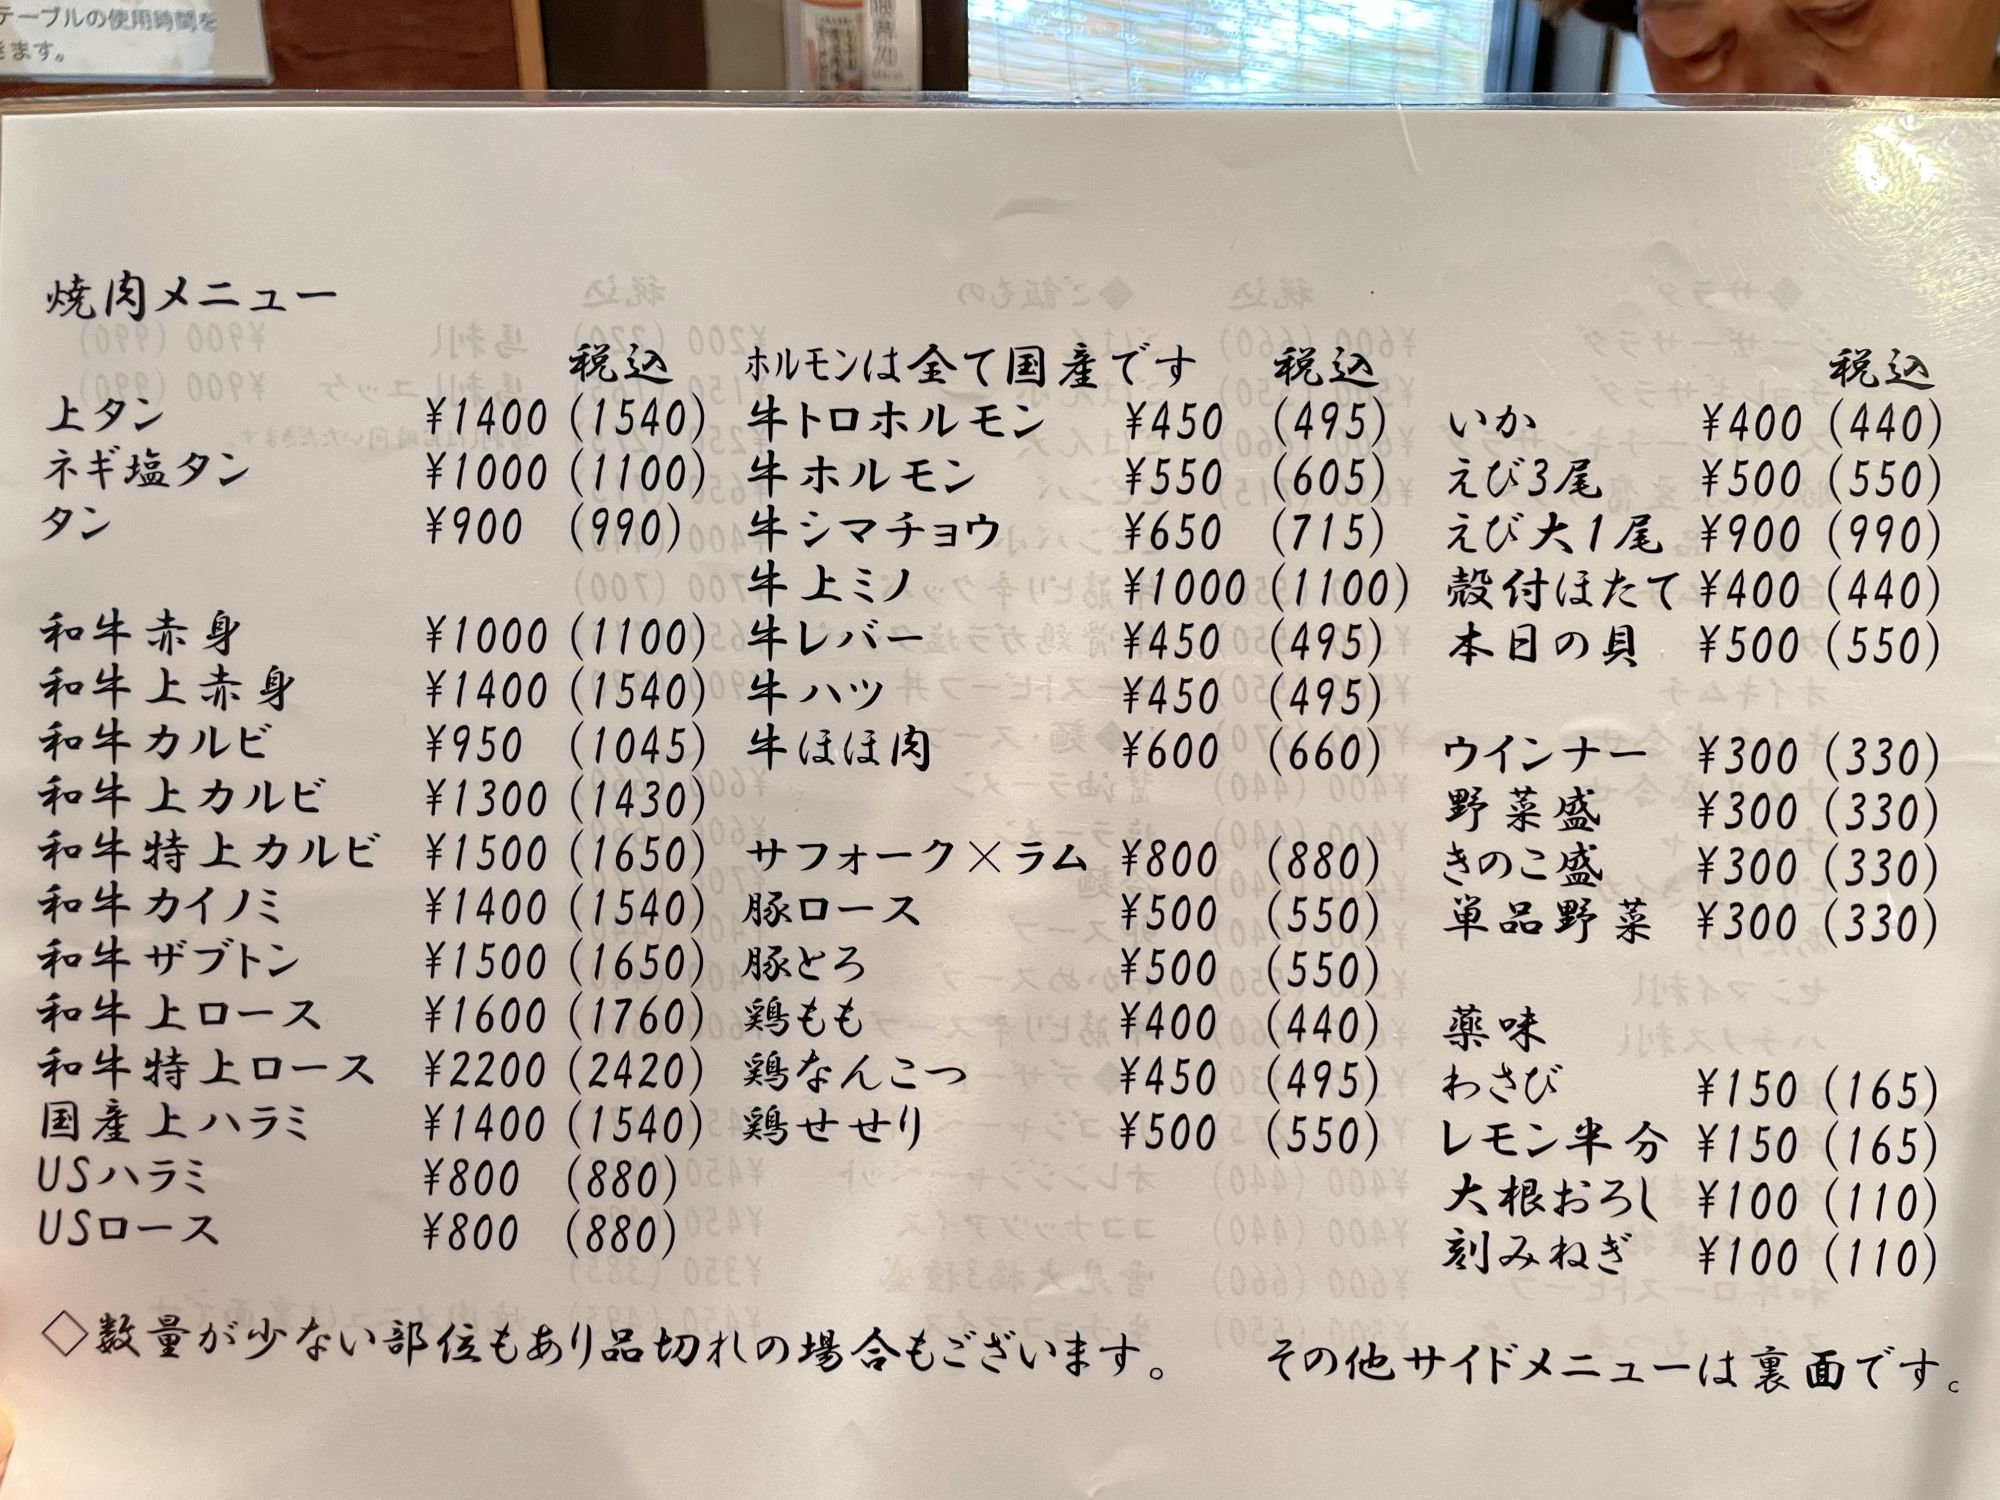 テーブルの使用時間を
きます。
焼肉メニュー
税込
上タン ¥1400 (1540)
ネギ塩タン ¥1000 (1100)
タン ¥900 (990)
和牛赤身 ¥1000 (1100)
和牛上赤身 ¥1400 (1540)
和牛カルビ ¥950 (1045)
和牛上カルビ ¥1300 (1430)
和牛特上カルビ ¥1500 (1650)
和牛カイノミ ¥1400 (1540)
和牛ザブトン ¥1500 (1650)
和牛上ロース ¥1600 (1760)
和牛特上ロース ¥2200 (2420)
国産上ハラミ ¥1400 (1540)
USハラミ ¥800 (880)
USロース ¥800 (880)
ホルモンは全て国産です 税込
牛トロホルモン ¥450 (495)
牛ホルモン ¥550 (605)
牛シマチョウ ¥650 (715)
牛上ミノ ¥1000 (1100)
牛レバー ¥450 (495)
牛ハツ ¥450 (495)
牛ほほ肉 ¥600 (660)
サフォーク×ラム ¥800 (880)
豚ロース ¥500 (550)
豚とろ ¥500 (550)
鶏もも ¥400 (440)
鶏なんこつ ¥450 (495)
鶏せせり ¥500 (550)
税込
いか ¥400 (440)
えび3尾 ¥500 (550)
えび大1尾 ¥900 (990)
殻付ほたて ¥400 (440)
本日の貝 ¥500 (550)
ウインナー ¥300 (330)
野菜盛 ¥300 (330)
きのこ盛 ¥300 (330)
単品野菜 ¥300 (330)
薬味
わさび ¥150 (165)
レモン半分 ¥150 (165)
大根おろし ¥100 (110)
刻みねぎ ¥100 (110)
◇数量が少ない部位もあり品切れの場合もございます。
その他サイドメニューは裏面です。